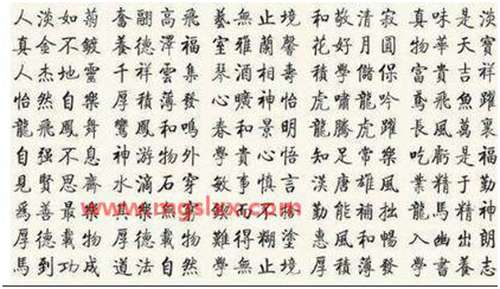 人淡如菊 奮翮高飛 藝無止境 和敬清寂 真味是淡
真金不鍍 養德澤福 室雅蘭馨 花好月圓 物華天寶
人杰地靈 千祥雲集 琴酒相壽 積學儲 富貴吉祥
怡然自樂 厚積薄發 心曠神怡 虎嘯龍吟 鳶飛魚躍
龍飛鳳舞 鸞鳳和鳴 春和景明 龍騰虎躍 長風萬里
自强不息 神游物外 和貴心悟 知足常樂 吃虧是福
見賢思齊 水滴石穿 敏事慎言 漢唐雄風 業精于勤
爲善最樂 學而不 勤能補拙 龍馬精神
厚德載物 難得糊塗 惠風和暢 入幽出朗
馬到功成 道法自然 學無止境 厚積薄發 學書養志